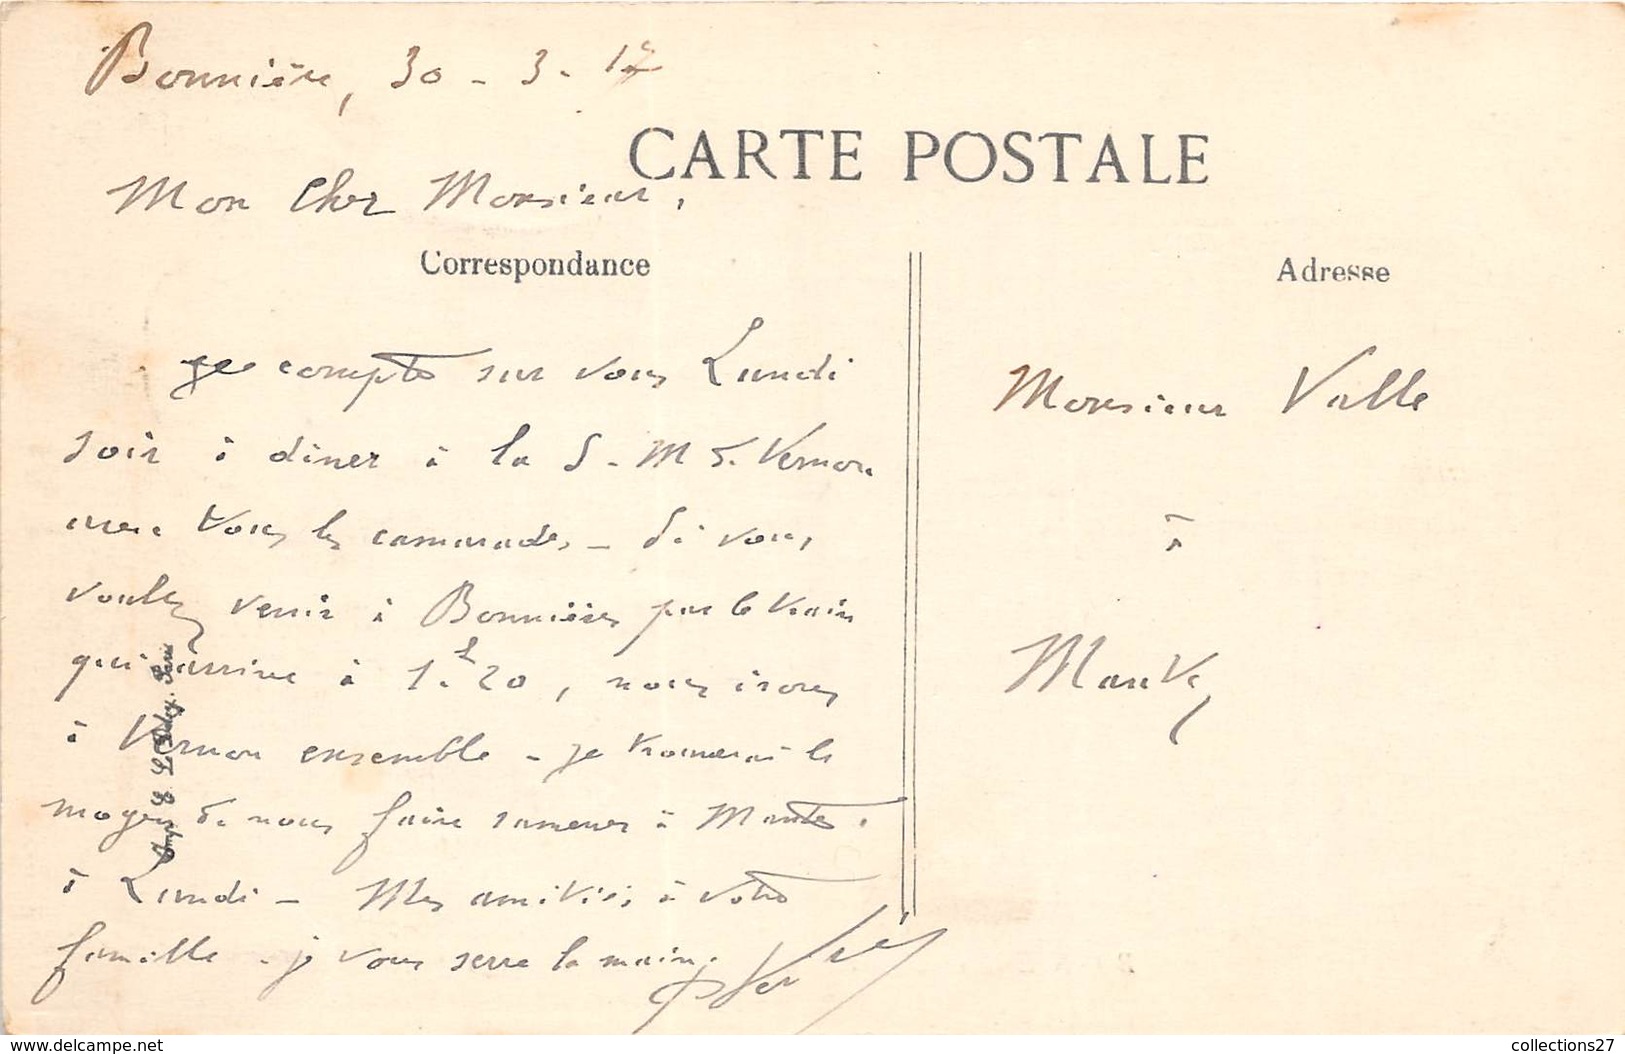 Bonnière, 30 - 3 - 12
CARTE POSTALE
Mon Cher Monsieur,
Correspondance
Je compte sur vous Lundi
soir à dîner à la S. M de Vernon
avec tous les camarades - Si vous
voulez venir à Bonnières par le train
qui arrive à 1h.20, nous irons
à Vernon ensemble - je trouverai le
moyen de nous faire ramener à Mantes.
à Lundi - Mes amitiés à votre
famille - je vous serre la main.
Adresse
Monsieur Valle
à
Mantes
Paris
www.delcampe.net
collections27